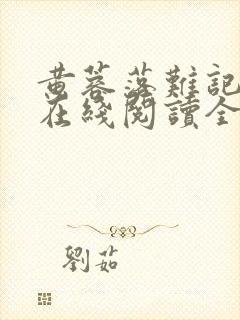 黄蓉落難記
在綫閱讀全
劉茹